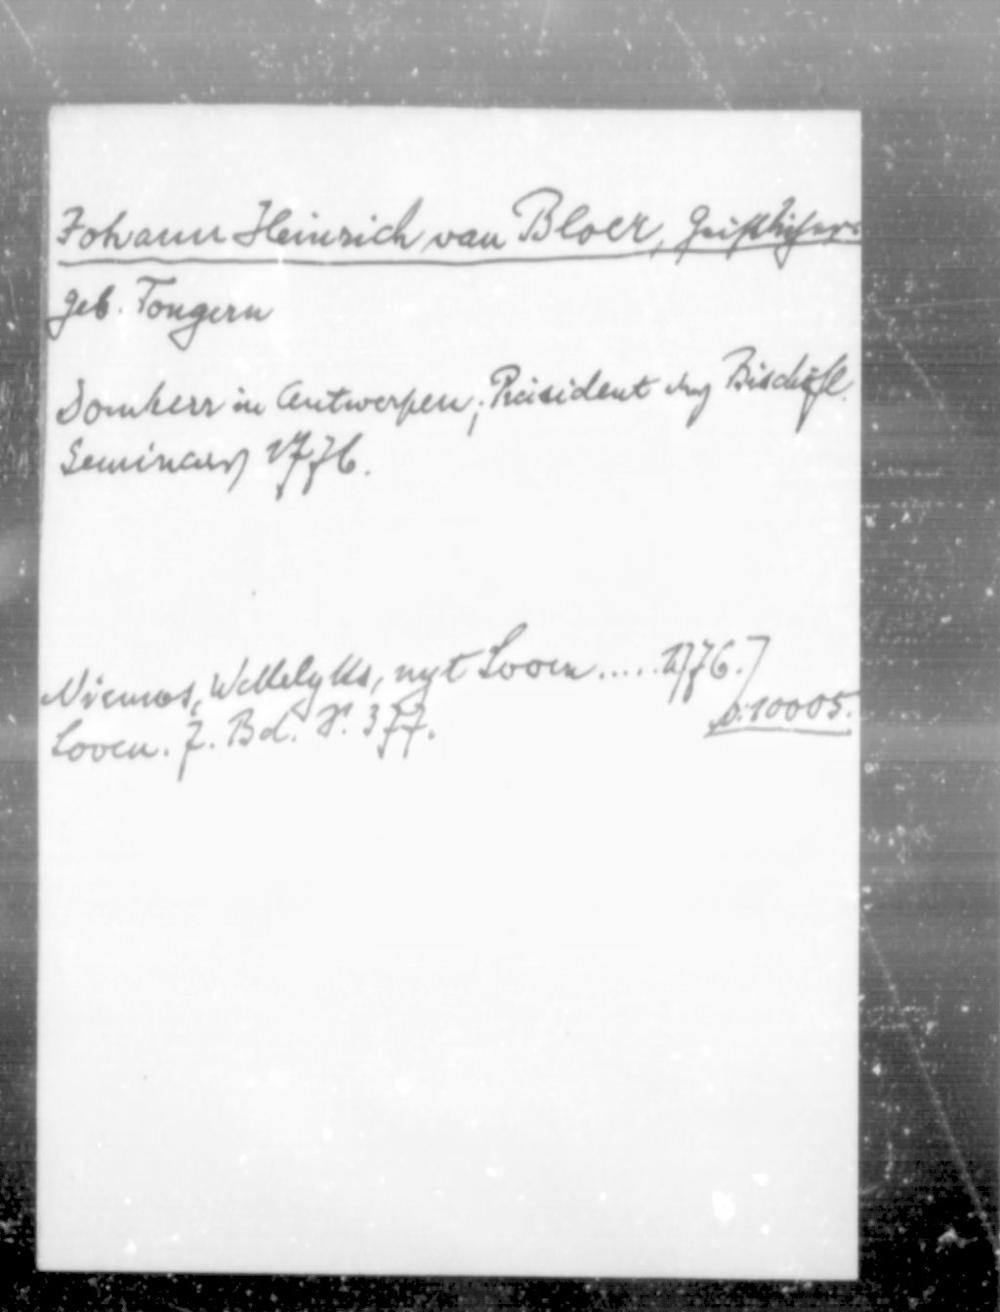 Johann Heinrich van Bloer, Geistlicher.
geb. Tongern
Domherr in Antwerpen, Präsident des Bischöfl.
Seminars 1776.
Nieuws, Wekkelyks, uyt Loven ..... 1776.)
Loven. 7. Bd. S. 377. D: 10005.